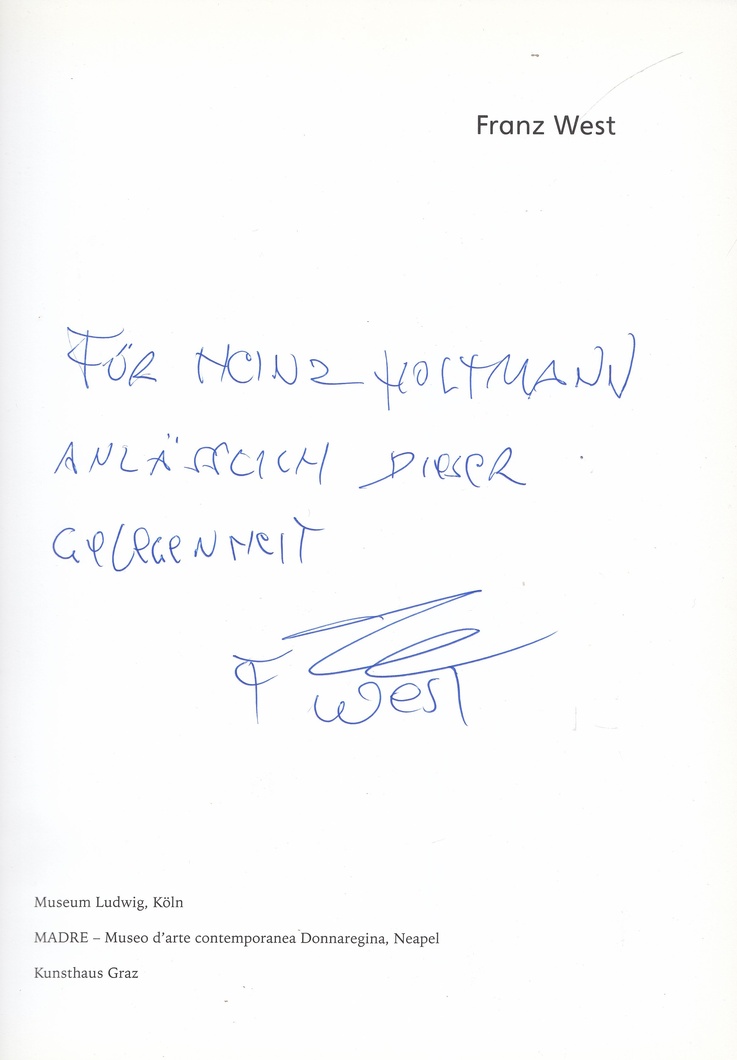 Franz West
FÜR HEINZ HOLTMANN
ANLÄSSLICH DIESER
GELEGENHEIT
F West
Museum Ludwig, Köln
MADRE – Museo d'arte contemporanea Donnaregina, Neapel
Kunsthaus Graz